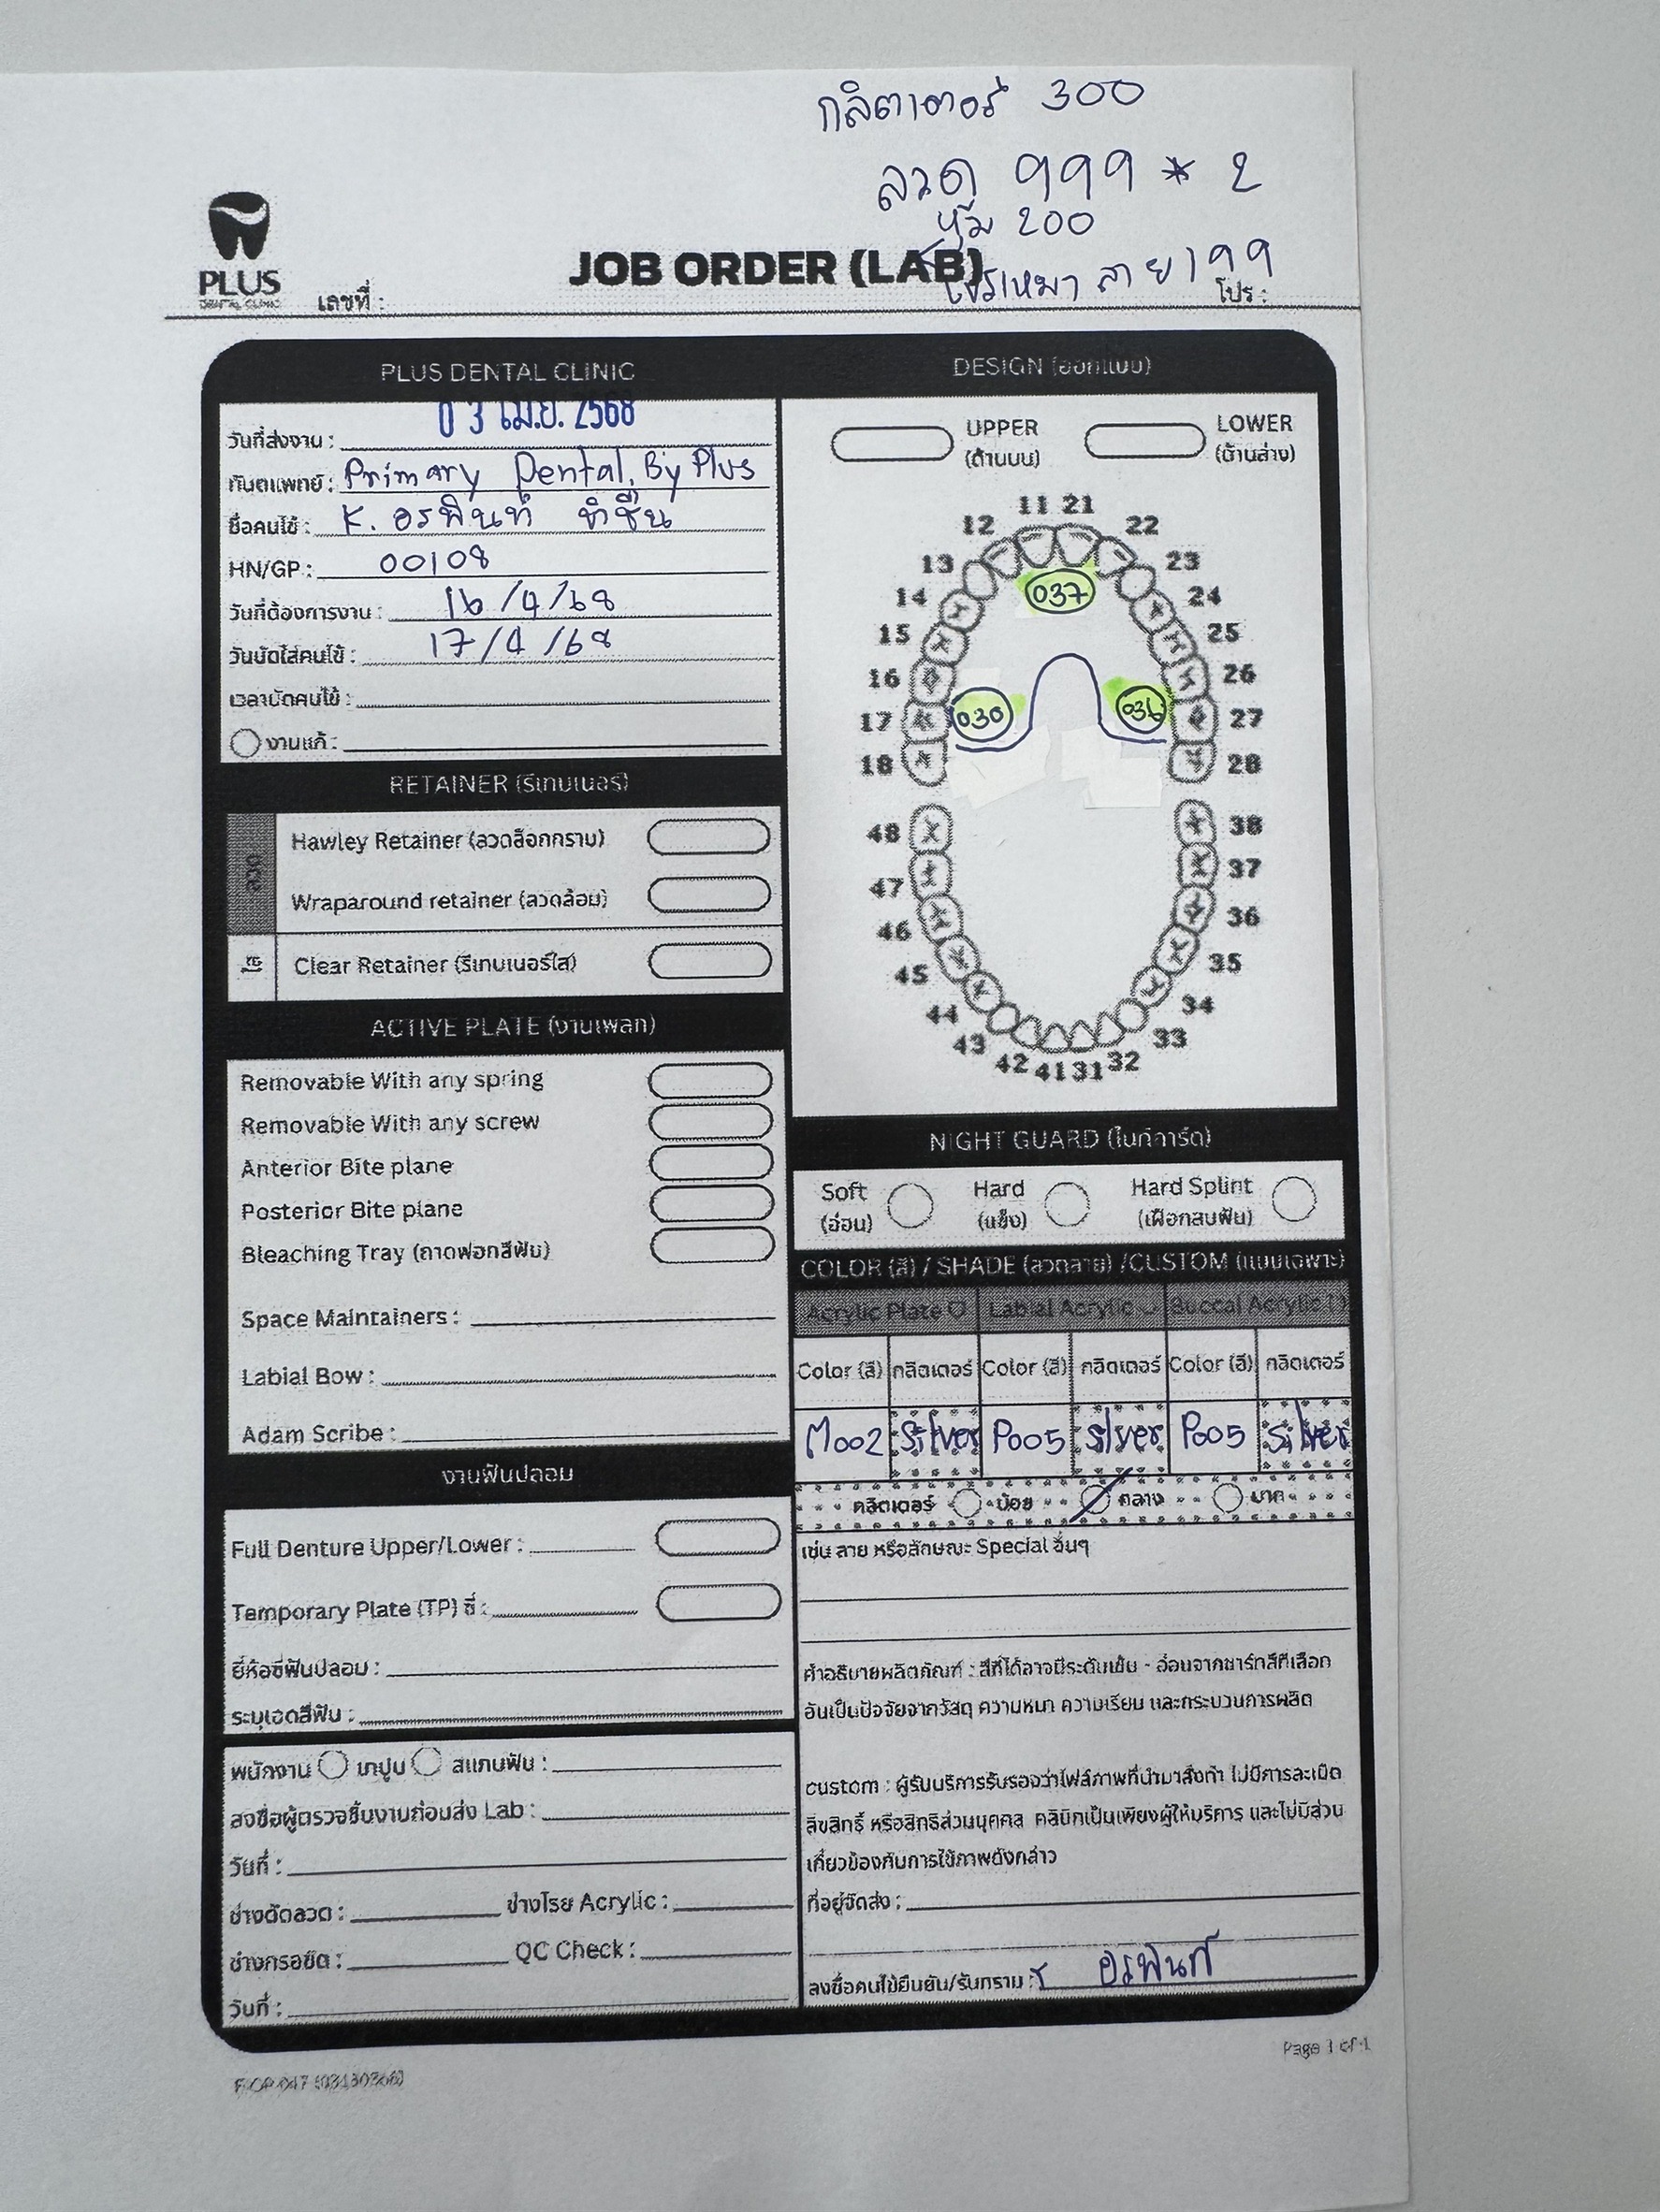 กลิตเตอร์ 300
ลวด 999 * 2
หุ้ม 200
โปรเหมาลาย 199
PLUS
DENTAL CLINIC
เลขที่ :
JOB ORDER (LAB)
โปร :
PLUS DENTAL CLINIC
วันที่ส่งงาน : 03 เม.ย. 2568
ทันตแพทย์ : Primary Dental. By Plus
ชื่อคนไข้ : K. อรพินท์
HN/GP : 00108
วันที่ต้องการงาน : 16/4/68
วันนัดใส่คนไข้ : 17/4/68
เวลานัดคนไข้ :
งานแก้ :
RETAINER (รีเทนเนอร์)
ลวด
Hawley Retainer (ลวดล็อกกราม)
Wraparound retainer (ลวดล้อม)
ใส
Clear Retainer (รีเทนเนอร์ใส)
ACTIVE PLATE (งานเพลท)
Removable With any spring
Removable With any screw
Anterior Bite plane
Posterior Bite plane
Bleaching Tray (ถาดฟอกสีฟัน)
Space Maintainers :
Labial Bow :
Adam Scribe :
งานฟันปลอม
Full Denture Upper/Lower :
Temporary Plate (TP) ซี่ :
ยี่ห้อซี่ฟันปลอม :
ระบุเฉดสีฟัน :
พนักงาน เทปูน สแกนฟัน :
ลงชื่อผู้ตรวจชิ้นงานก่อนส่ง Lab :
วันที่ :
ช่างดัดลวด : ช่างโรย Acrylic :
ช่างกรอขัด : QC Check :
วันที่ :
DESIGN (ออกแบบ)
UPPER LOWER
(ด้านบน) (ด้านล่าง)
11 21
12 22
13 23
037
14 24
15 25
16 26
17 030 036 27
18 28
48 38
47 37
46 36
45 35
44 34
43 33
42 41 31 32
NIGHT GUARD (ไนท์การ์ด)
Soft Hard Hard Splint
(อ่อน) (แข็ง) (เฝือกสบฟัน)
COLOR (สี) / SHADE (ลวดลาย) /CUSTOM (แบบเฉพาะ)
Acrylic Plate Labial Acrylic Buccal Acrylic
Color (สี) กลิตเตอร์ Color (สี) กลิตเตอร์ Color (สี) กลิตเตอร์
M002 Silver P005 silver P005 silver
กลิตเตอร์ น้อย กลาง มาก
เช่น ลาย หรือลักษณะ Special อื่นๆ
คำอธิบายผลิตภัณฑ์ : สีที่ได้อาจมีระดับเข้ม - อ่อนจากชาร์ทสีที่เลือก
อันเป็นปัจจัยจากวัสดุ ความหนา ความเรียบ และกระบวนการผลิต
custom : ผู้รับบริการรับรองว่าไฟล์ภาพที่นำมาสั่งทำ ไม่มีการละเมิด
ลิขสิทธิ์ หรือสิทธิส่วนบุคคล คลินิกเป็นเพียงผู้ให้บริการ และไม่มีส่วน
เกี่ยวข้องกับการใช้ภาพดังกล่าว
ที่อยู่จัดส่ง :
ลงชื่อคนไข้ยืนยัน/รับทราบ : x อรพินท์
Page 1 of 1